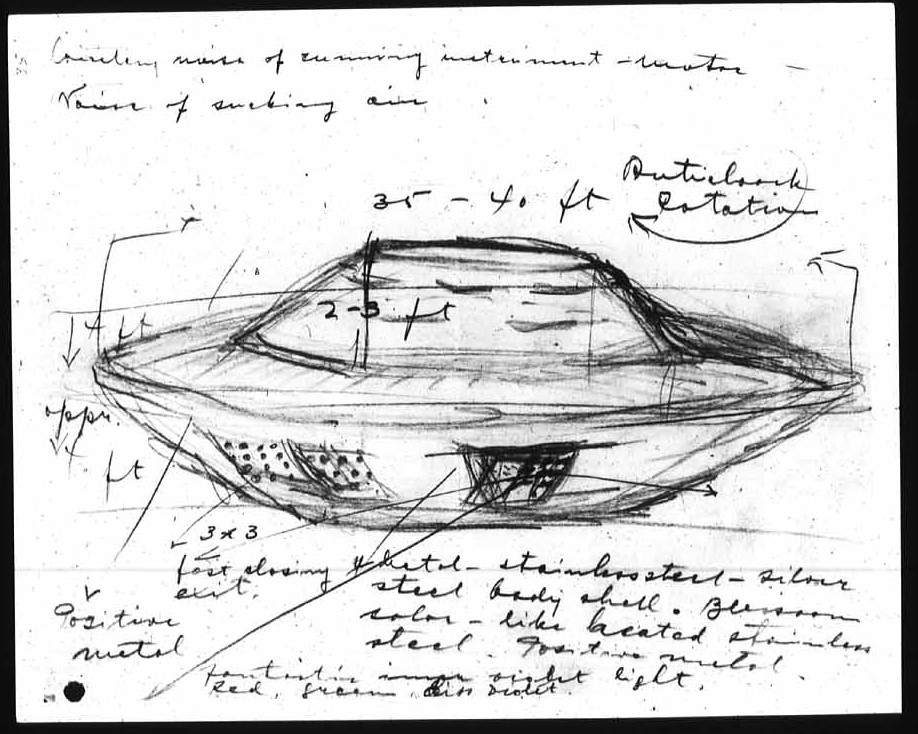 noise of running instrument - motor -
Noise of sucking air.
35 - 40 ft
Anticlock
Rotation
4 ft
2-3 ft
appr.
4
ft
3x3
fast closing
exit.
Metal - stainless steel - silver
steel body shell.
color - like heated stainless
steel. Positive metal
Positive
metal
Fantastic inner violet light.
Red, green, violet.